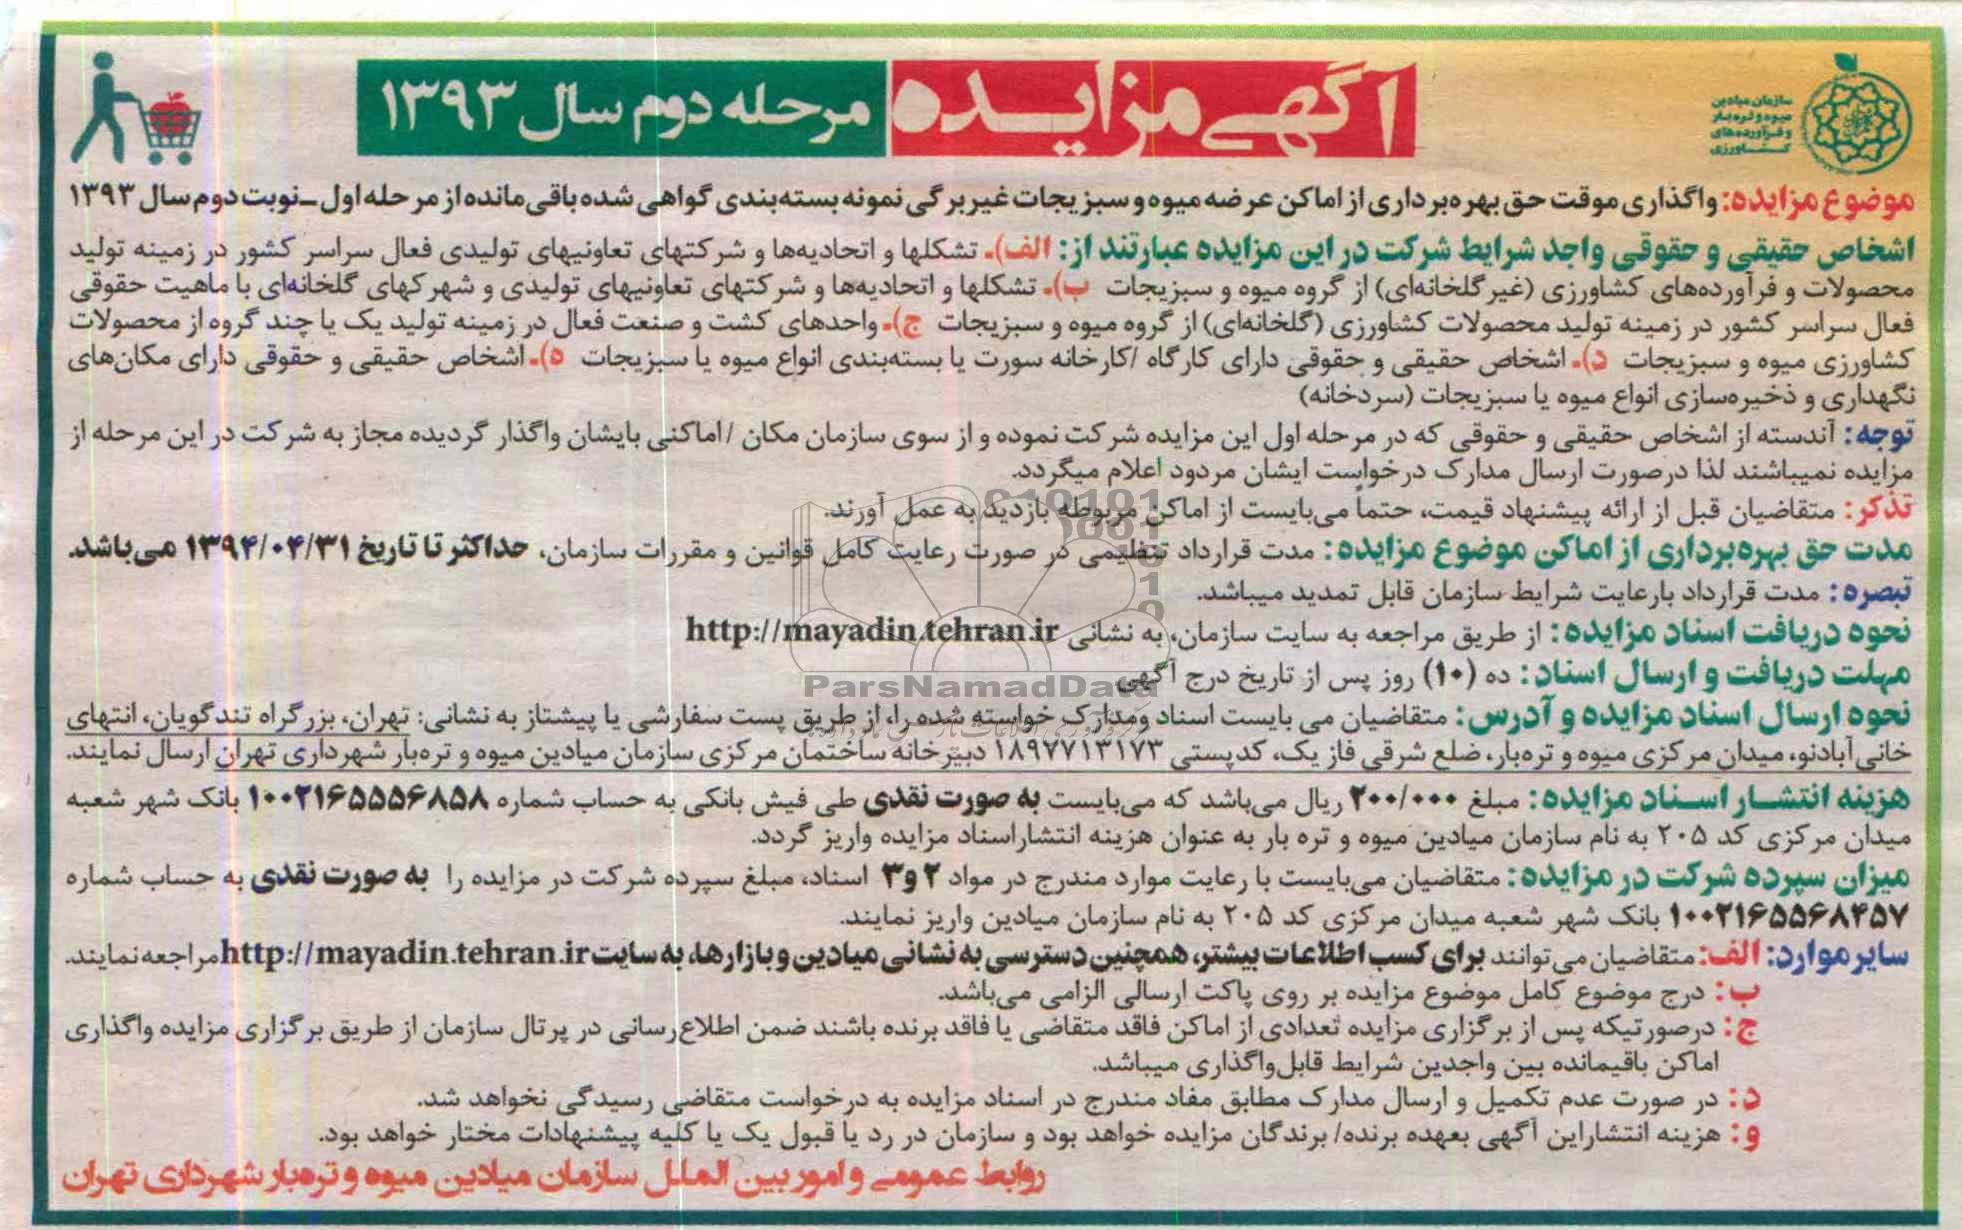 سازمان میادین
میوه و تره‌بار
و فرآورده‌های
کشاورزی
آگهی مزایده مرحله دوم سال ۱۳۹۳
موضوع مزایده: واگذاری موقت حق بهره‌برداری از اماکن عرضه میوه و سبزیجات غیربرگی نمونه بسته‌بندی گواهی شده باقی‌مانده از مرحله اول ـ نوبت دوم سال ۱۳۹۳
اشخاص حقیقی و حقوقی واجد شرایط شرکت در این مزایده عبارتند از: الف)ـ تشکلها و اتحادیه‌ها و شرکتهای تعاونیهای تولیدی فعال سراسر کشور در زمینه تولید
محصولات و فرآورده‌های کشاورزی (غیر گلخانه‌ای) از گروه میوه و سبزیجات ب)ـ تشکلها و اتحادیه‌ها و شرکتهای تعاونیهای تولیدی و شهرکهای گلخانه‌ای با ماهیت حقوقی
فعال سراسر کشور در زمینه تولید محصولات کشاورزی (گلخانه‌ای) از گروه میوه و سبزیجات ج)ـ واحدهای کشت و صنعت فعال در زمینه تولید یک یا چند گروه از محصولات
کشاورزی میوه و سبزیجات د)ـ اشخاص حقیقی و حقوقی دارای کارگاه /کارخانه سورت یا بسته‌بندی انواع میوه یا سبزیجات ه)ـ اشخاص حقیقی و حقوقی دارای مکان‌های
نگهداری و ذخیره‌سازی انواع میوه یا سبزیجات (سردخانه)
توجه: آندسته از اشخاص حقیقی و حقوقی که در مرحله اول این مزایده شرکت نموده و از سوی سازمان مکان /اماکنی بایشان واگذار گردیده مجاز به شرکت در این مرحله از
مزایده نمیباشند لذا درصورت ارسال مدارک درخواست ایشان مردود اعلام میگردد.
تذکر: متقاضیان قبل از ارائه پیشنهاد قیمت، حتماً می‌بایست از اماکن مربوطه بازدید به عمل آورند.
مدت حق بهره‌برداری از اماکن موضوع مزایده: مدت قرارداد تنظیمی در صورت رعایت کامل قوانین و مقررات سازمان، حداکثر تا تاریخ ۱۳۹۴/۰۴/۳۱ می‌باشد.
تبصره: مدت قرارداد بارعایت شرایط سازمان قابل تمدید میباشد.
نحوه دریافت اسناد مزایده: از طریق مراجعه به سایت سازمان، به نشانی http://mayadin.tehran.ir
مهلت دریافت و ارسال اسناد: ده (۱۰) روز پس از تاریخ درج آگهی
ParsNamadData
نحوه ارسال اسناد مزایده و آدرس: متقاضیان می بایست اسناد ومدارک خواسته شده را، از طریق پست سفارشی یا پیشتاز به نشانی: تهران، بزرگراه تندگویان، انتهای
خانی‌آبادنو، میدان مرکزی میوه و تره‌بار، ضلع شرقی فاز یک، کدپستی ۱۸۹۷۷۱۳۱۷۳ دبیرخانه ساختمان مرکزی سازمان میادین میوه و تره‌بار شهرداری تهران ارسال نمایند.
هزینه انتشار اسناد مزایده: مبلغ ۲۰۰/۰۰۰ ریال می‌باشد که می‌بایست به صورت نقدی طی فیش بانکی به حساب شماره ۱۰۰۲۱۶۵۵۵۶۸۵۸ بانک شهر شعبه
میدان مرکزی کد ۲۰۵ به نام سازمان میادین میوه و تره بار به عنوان هزینه انتشاراسناد مزایده واریز گردد.
میزان سپرده شرکت در مزایده: متقاضیان می‌بایست با رعایت موارد مندرج در مواد ۲ و ۳ اسناد، مبلغ سپرده شرکت در مزایده را به صورت نقدی به حساب شماره
۱۰۰۲۱۶۵۵۶۸۴۵۷ بانک شهر شعبه میدان مرکزی کد ۲۰۵ به نام سازمان میادین واریز نمایند.
سایر موارد: الف: متقاضیان می‌توانند برای کسب اطلاعات بیشتر، همچنین دسترسی به نشانی میادین و بازارها، به سایت http://mayadin.tehran.ir مراجعه نمایند.
ب: درج موضوع کامل موضوع مزایده بر روی پاکت ارسالی الزامی می‌باشد.
ج: درصورتیکه پس از برگزاری مزایده تعدادی از اماکن فاقد متقاضی یا فاقد برنده باشند ضمن اطلاع‌رسانی در پرتال سازمان از طریق برگزاری مزایده واگذاری
اماکن باقیمانده بین واجدین شرایط قابل‌واگذاری میباشد.
د: در صورت عدم تکمیل و ارسال مدارک مطابق مفاد مندرج در اسناد مزایده به درخواست متقاضی رسیدگی نخواهد شد.
و: هزینه انتشاراین آگهی بعهده برنده/ برندگان مزایده خواهد بود و سازمان در رد یا قبول یک یا کلیه پیشنهادات مختار خواهد بود.
روابط عمومی و امور بین الملل سازمان میادین میوه و تره‌بار شهرداری تهران